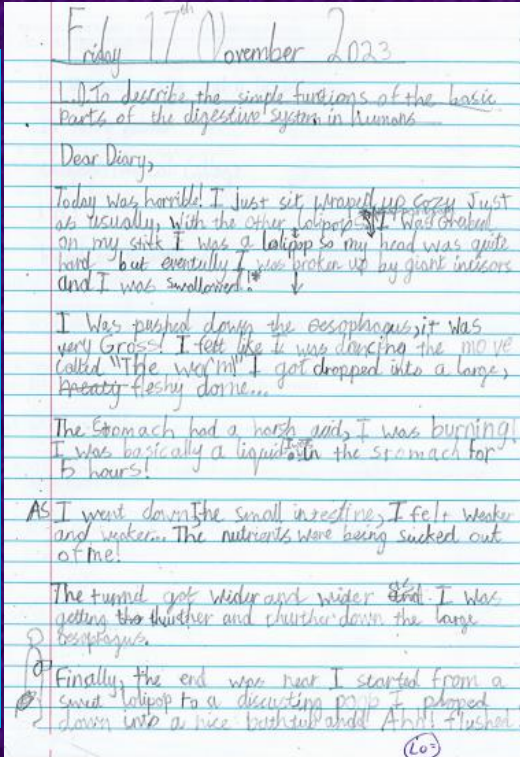 Friday 17th November 2023
L.O To describe the simple functions of the basic
parts of the digestive system in humans
Dear Diary,
Today was horrible! I just sit wraped up cozy Just
as usually, with the other lolipops I was Grabed
on my stick I was a lolipop so my head was quite
hard but eventully I was broken up by giant incisors
and I was swallowed!*
I was pushed down the oesophagus, it was
very Gross! I felt like I was doncing the move
called "The worm" I got dropped into a large,
fleshy dome...
The Stomach had a harsh acid, I was burning!
I was basically a liquid in the stomach for
5 hours!
As I went down the small intestine, I felt weaker
and weaker... The nutrients were being sucked out
of me!
The tunnel got wider and wider as I was
getting thurther and thurther down the large
oesophagus.
Finally, the end was near I started from a
sweet lolipop to a discusting poop I plopped
down into a nice bathtub and Ahh! flushed